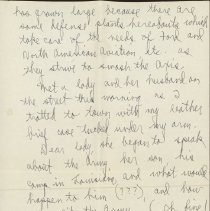 too grown large because there are
some defense plants hereabouts which
take care of the needs of Ford and
North American Aviation etc. as
they strive to smash the Axis.
Met a lady and her husband on
the street this morning as I
trotted to town with my leather
brief case tucked under my arm.
Dear lady, she began to speak
about the Army her son, his
camp in Louisiana and what would
happen to him (???), and how
the Army